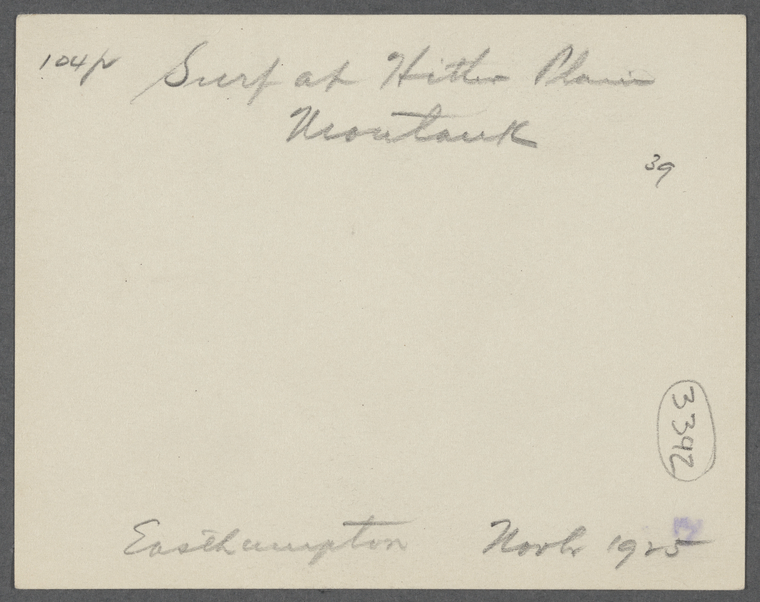 104 Surf at Hither Plain
Montauk
39
3392
Easthampton Novbr 1925